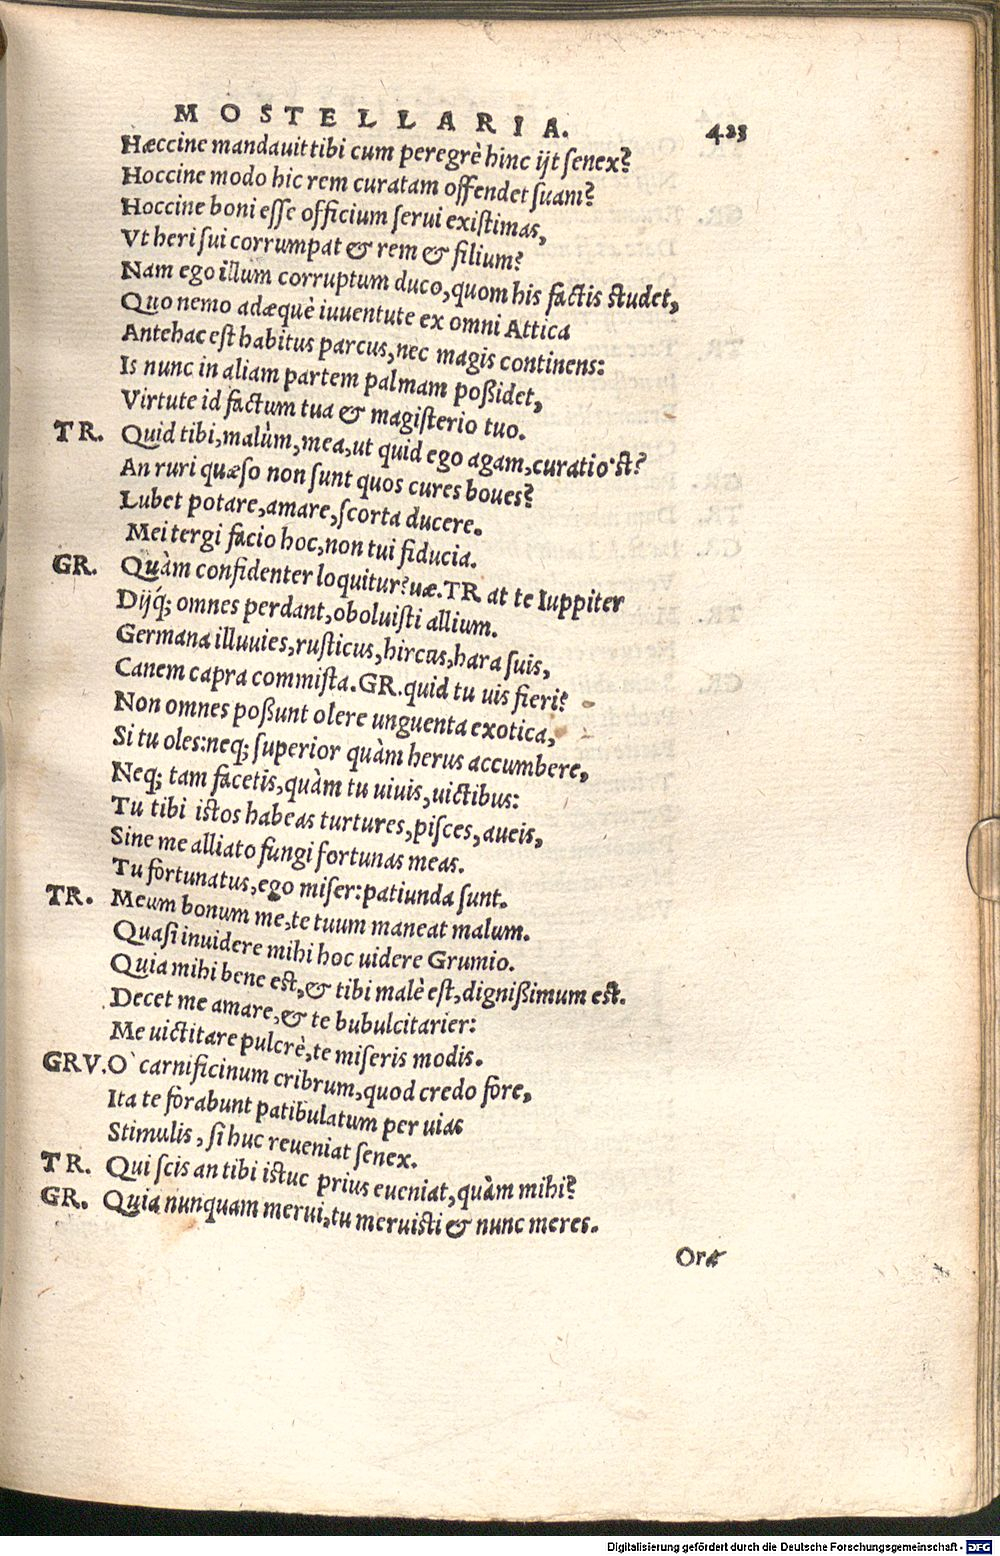 MOSTELLARIA. 423
Hæccine mandauit tibi cum peregrè hinc ijt senex?
Hoccine modo hic rem curatam offendet suam?
Hoccine boni esse officium serui existimas,
Vt heri sui corrumpat & rem & filium?
Nam ego illum corruptum duco, quom his factis studet,
Quo nemo adæquè iuuentute ex omni Attica
Antehac est habitus parcus, nec magis continens:
Is nunc in aliam partem palmam poßidet,
Virtute id factum tua & magisterio tuo.
TR. Quid tibi, malùm, mea, ut quid ego agam, curatio'st?
An ruri quæso non sunt quos cures boues?
Lubet potare, amare, scorta ducere.
Mei tergi facio hoc, non tui fiducia.
GR. Quàm confidenter loquitur? uæ. TR at te Iuppiter
Dijq; omnes perdant, oboluisti allium.
Germana illuuies, rusticus, hircus, hara suis,
Canem capra commista. GR. quid tu uis fieri?
Non omnes poßunt olere unguenta exotica,
Si tu oles: neq; superior quàm herus accumbere,
Neq; tam facetis, quàm tu uiuis, uictibus:
Tu tibi istos habeas turtures, pisces, aueis,
Sine me alliato fungi fortunas meas.
Tu fortunatus, ego miser: patiunda sunt.
TR. Meum bonum me, te tuum maneat malum.
Quasi inuidere mihi hoc uidere Grumio.
Quia mihi bene est, & tibi malè est, dignißimum est.
Decet me amare, & te bubulcitarier:
Me uictitare pulcrè, te miseris modis.
GRV. O` carnificinum cribrum, quod credo fore,
Ita te forabunt patibulatum per uias
Stimulis, si huc reueniat senex.
TR. Qui scis an tibi istuc prius eueniat, quàm mihi?
GR. Quia nunquam merui, tu meruisti & nunc meres.
Ora
Digitalisierung gefördert durch die Deutsche Forschungsgemeinschaft - DFG